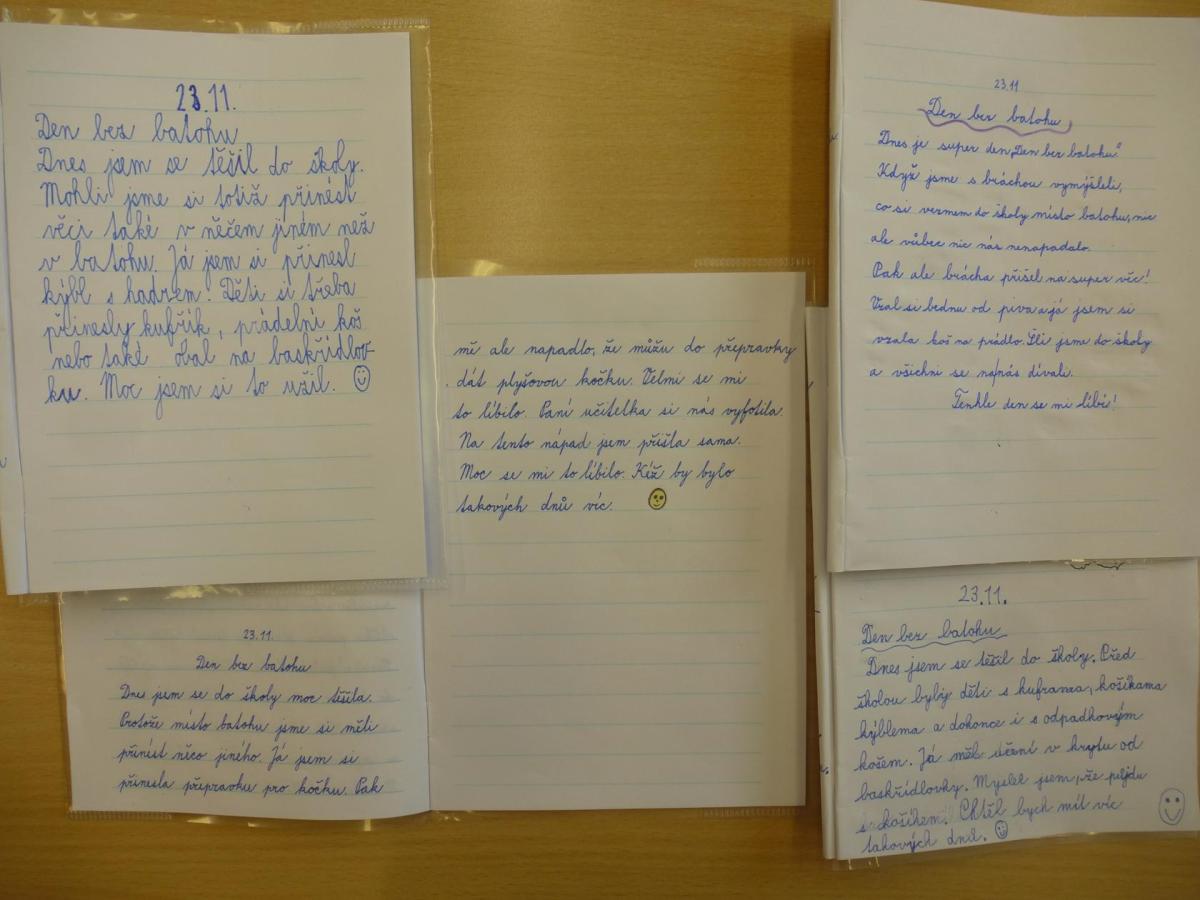 23.11.
Den bez batohu
Dnes jsem se těšil do školy.
Mohli jsme si totiž přinést
věci také v něčem jiném než
v batohu. Já jsem si přinesl
kýbl s hadrem. Děti si třeba
přinesly kufřík, prádelní koš
nebo také obal na baskřídlov
ku. Moc jsem si to užil.
23.11.
Den bez batohu
Dnes jsem se do školy moc těšila.
Protože místo batohu jsme si měli
přinést něco jiného. Já jsem si
přinesla přepravku pro kočku. Pak
mě ale napadlo, že můžu do přepravky
dát plyšovou kočku. Velmi se mi
to líbilo. Paní učitelka si nás vyfotila.
Na tento nápad jsem přišla sama.
Moc se mi to líbilo. Kéž by bylo
takových dnů víc.
23.11
Den bez batohu
Dnes je super den „Den bez batohu“.
Když jsme s bráchou vymýšleli,
co si vezmem do školy místo batohu, nic
ale vůbec nic nás nenapadalo.
Pak ale brácha přišel na super věc!
Vzal si bednu od piva a já jsem si
vzala koš na prádlo. Šli jsme do školy
a všichni se na nás dívali.
Tenhle den se mi líbí!
23.11.
Den bez batohu
Dnes jsem se těšil do školy. Před
školou byly děti s kuframa, košíkama
kýblema a dokonce i s odpadkovým
košem. Já měl věci v krytu od
baskřídlovky. Myslel jsem, že půjdu
s košíkem. Chtěl bych mít víc
takových dnů.